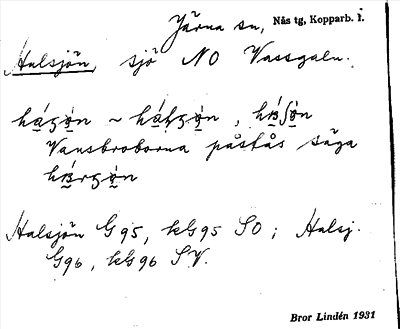 Järna sn, Nås tg, Kopparb. l.
Halsjön, sjö NO Vassgaln.
Vansbroborna påstås säga
Halsjön G95, kG95 SO; Halsj.
G96, kG96 SV.
Bror Lindén 1931